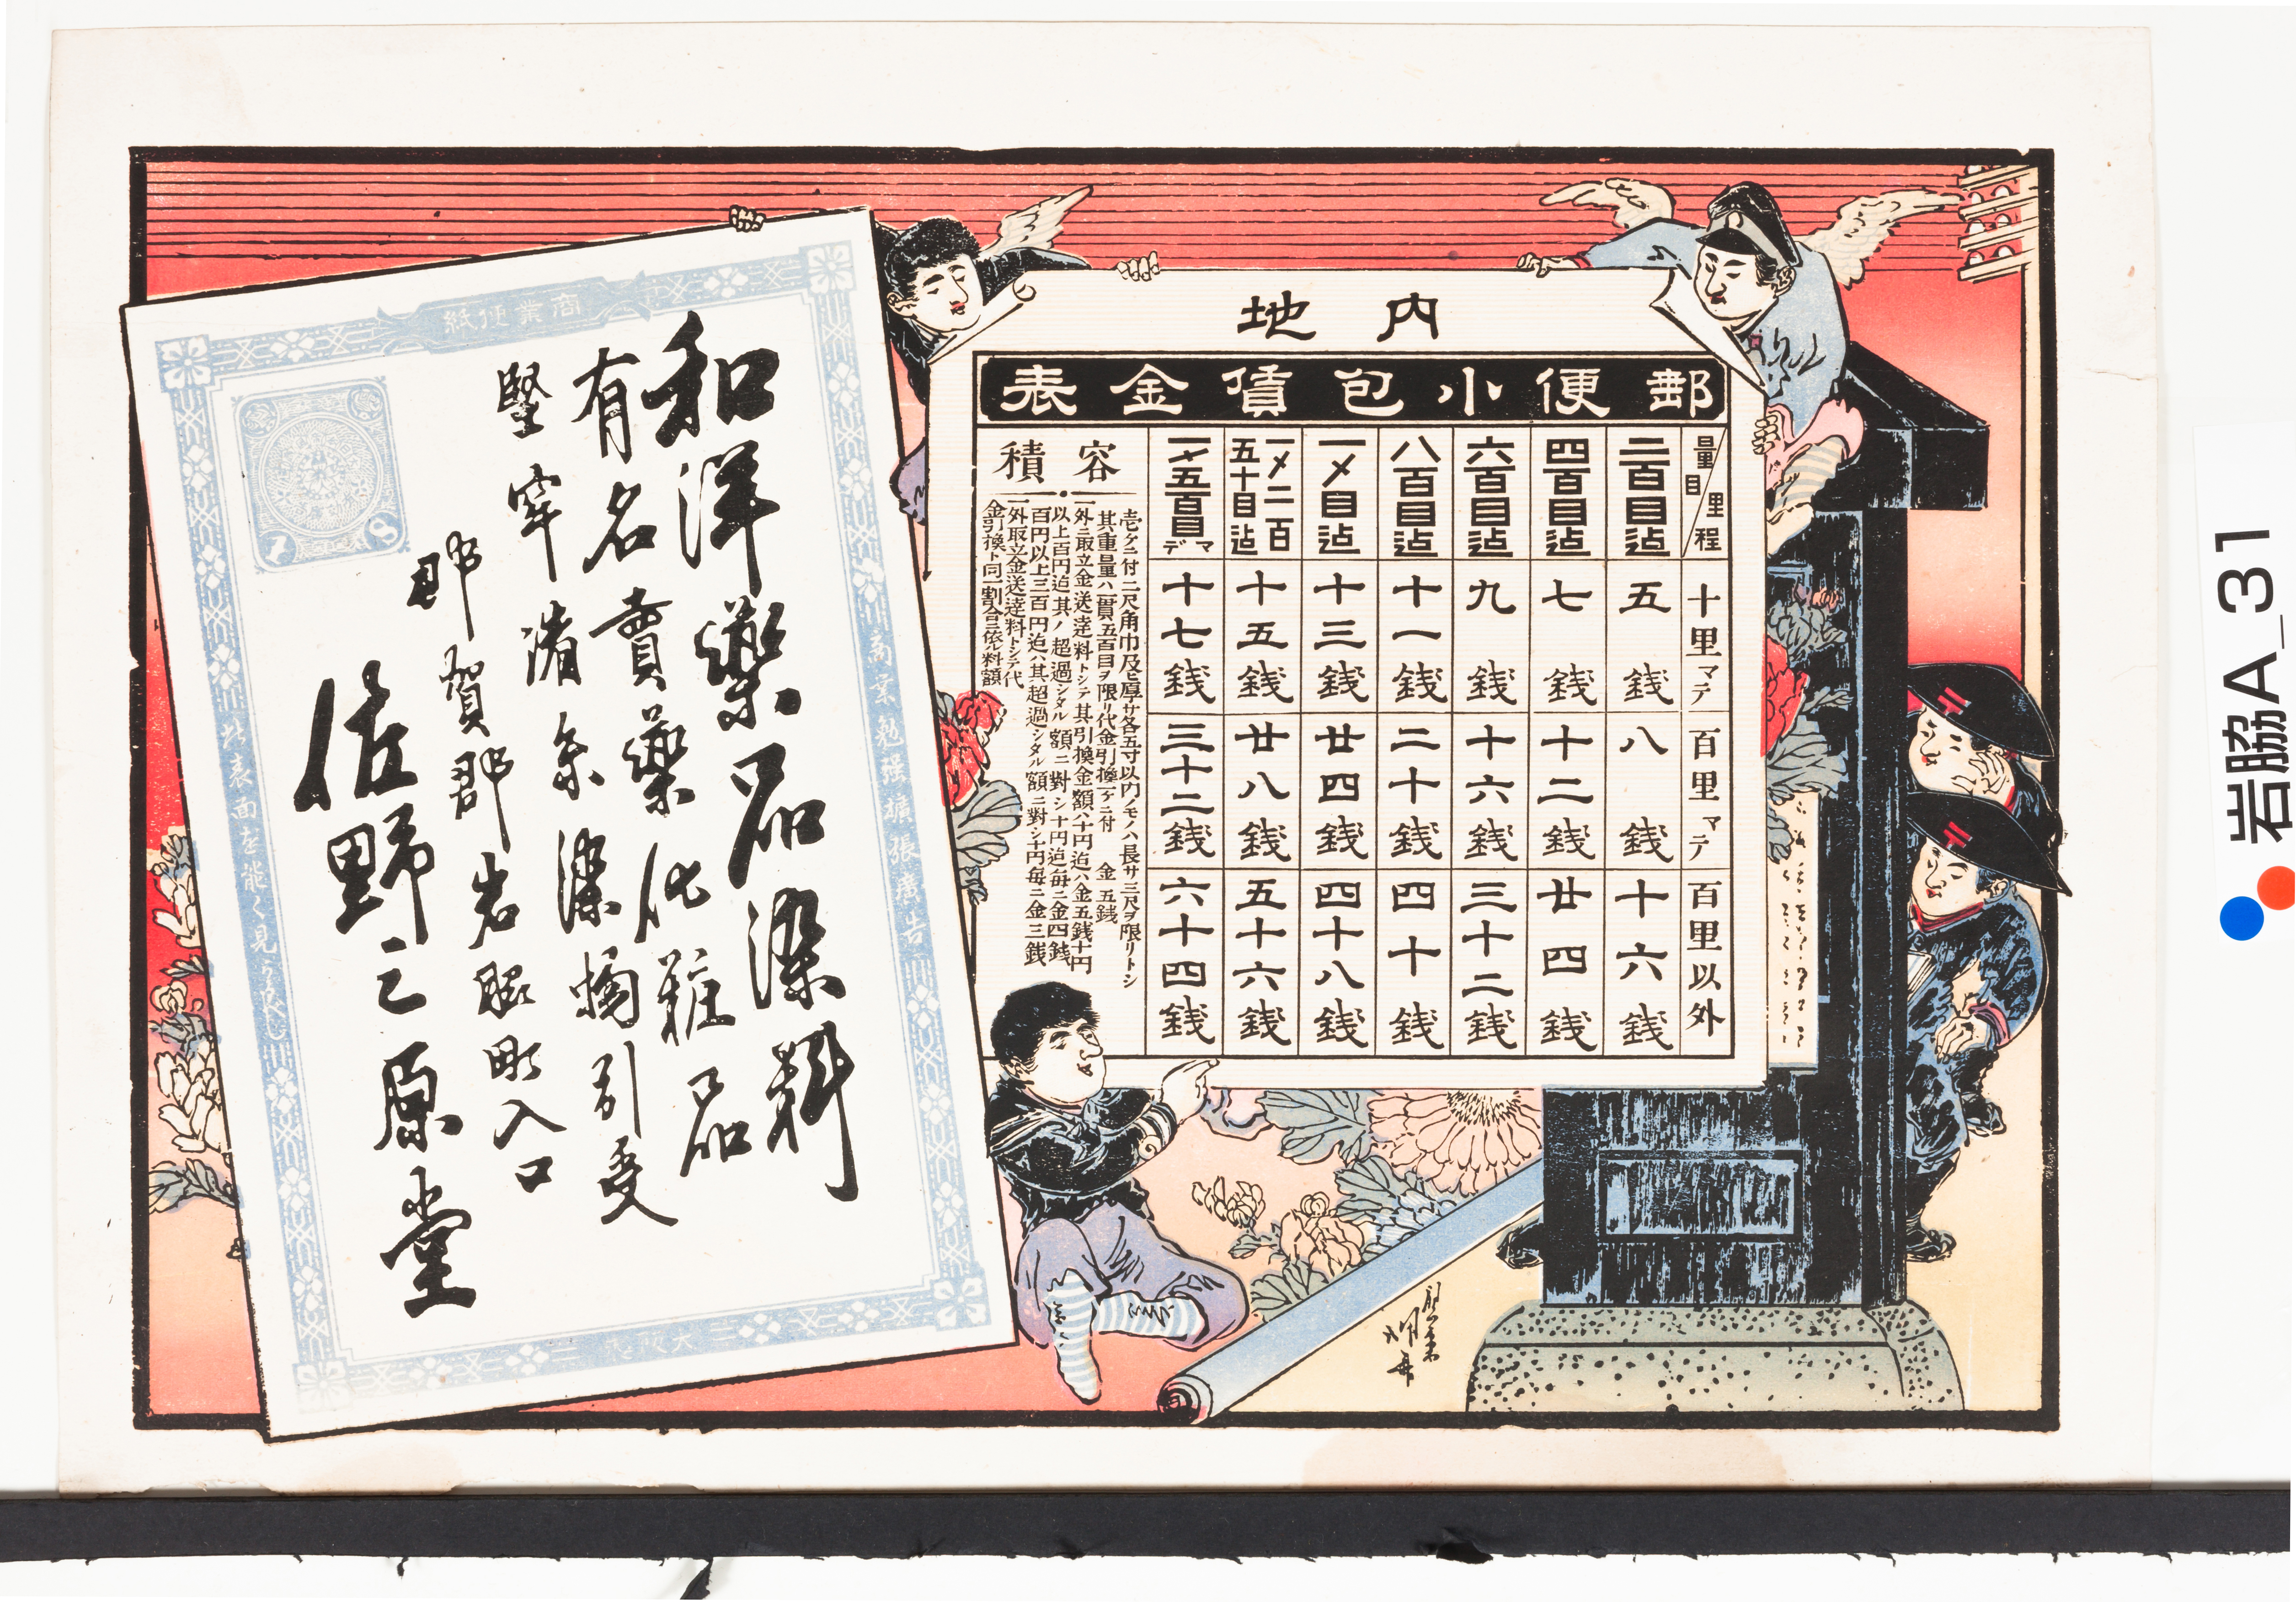 内地
郵便小包賃金表
量目/里程 十里マデ 百里マデ 百里以外
二百目迠 五銭 八銭 十六銭
四百目迠 七銭 十二銭 廿四銭
六百目迠 九銭 十六銭 三十二銭
八百目迠 十一銭 二十銭 四十銭
一〆目迠 十三銭 廿四銭 四十八銭
一〆二百五十目迠 十五銭 廿八銭 五十六銭
一〆五百目マデ 十七銭 三十二銭 六十四銭
容積
壱ケニ付二尺角巾及ビ厚サ各五寸以内ノモノハ長サ三尺ヲ限リトシ
其重量ハ一貫五百目ヲ限リ代金引換一ケニ付 金五銭
外ニ取立金送達料トシテ其引換金額八十円迠ハ金五銭十円
以上百円迠其ノ超過シタル額ニ對シ十円迠毎ニ金四銭
百円以上三百円迠ハ其超過シタル額ニ對シ十円毎ニ金三銭
外取立金送達料トシテ代
金引換ト同一割合ニ依料額
商業便紙
商業勉强擴張廣告
此表面を能く見られよ
和洋藥品染料
有名賣藥化粧品
堅牢諸糸染物引受
那賀郡岩脇町入口
佐野三原堂
岩脇A_31